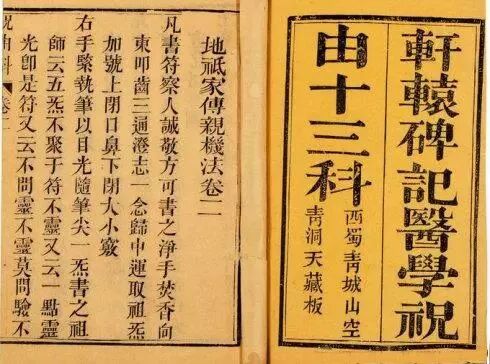 軒轅碑記醫學祝
由十三科
西蜀青城山空
青洞天藏板
地祗家傳親機法卷二
凡書符察人誠敬方可書之淨手焚香向
東叩齒三通澄志一念歸中運取祖炁
加號上閉口鼻下閉大小竅
右手緊執筆以目光隨筆尖一炁書之祖
師云五炁不聚于符不靈又云一點靈
光卽是符又云不問靈不靈莫問驗不
由科 卷二